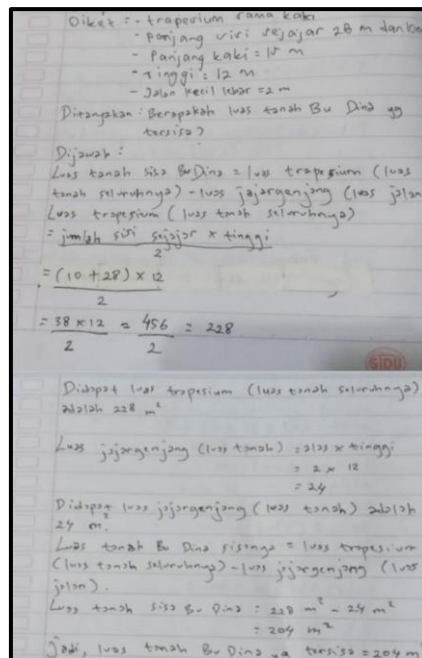 Diket : - trapesium sama kaki
- panjang sisi sejajar 28 m dan
- Panjang kaki = 15 m
- Tinggi = 12 m
- Jalan kecil lebar = 2 m
Ditanyakan : Berapakah luas tanah Bu Dina yg
tersisa?
Dijawab :
Luas tanah sisa Bu Dina = luas trapesium (luas
tanah seluruhnya) - luas jajargenjang (luas jalan
Luas trapesium (luas tanah seluruhnya)
= jumlah sisi sejajar x tinggi
2
= (10 + 28) x 12
2
= 38 x 12 = 456 = 228
2 2
SIDU
Didapat luas trapesium (luas tanah seluruhnya)
adalah 228 m²
Luas jajargenjang (luas tanah) = alas x tinggi
= 2 x 12
= 24
Didapat luas jajargenjang (luas tanah) adalah
24 m².
Luas tanah Bu Dina sisanya = luas trapesium
(luas tanah seluruhnya) - luas jajargenjang (luas
jalan).
Luas tanah sisa Bu Dina = 228 m² - 24 m²
= 204 m²
Jadi, luas tanah Bu Dina yg tersisa = 204 m²